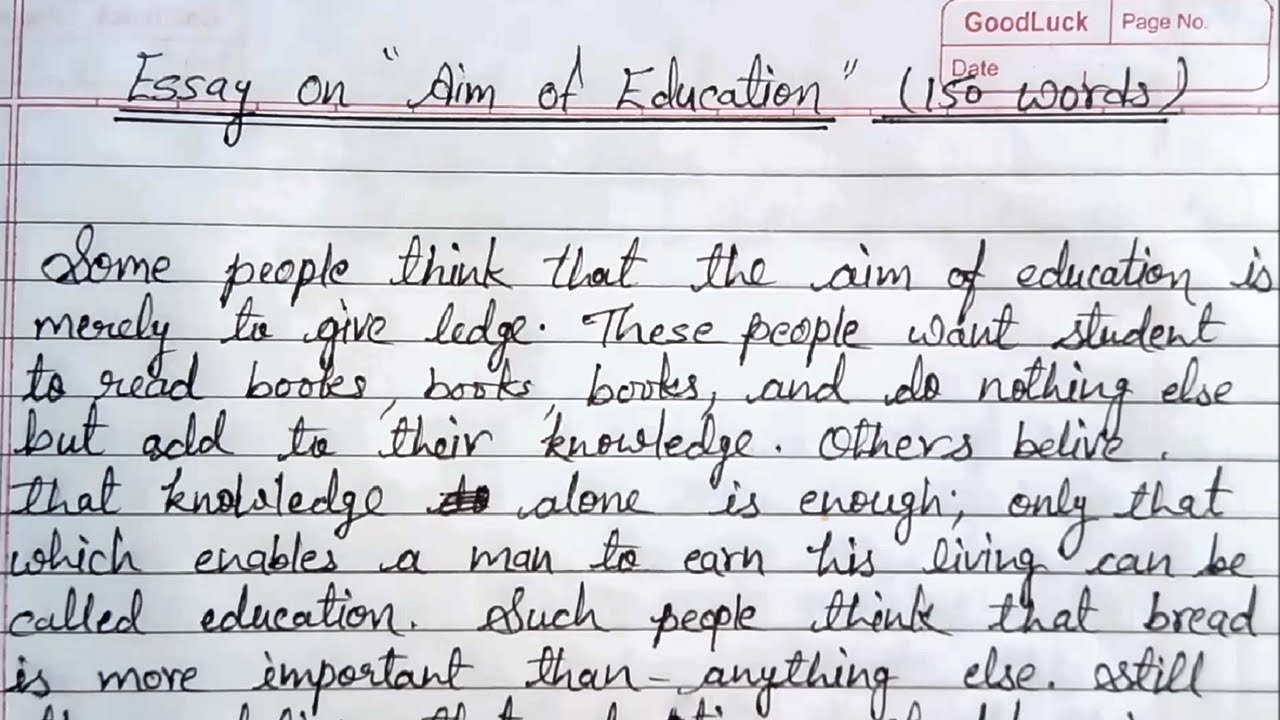 GoodLuck Page No.
Date
Essay on "Aim of Education" (150 words)
Some people think that the aim of education is
merely to give ledge. These people want student
to read books, books, books, and do nothing else
but add to their knowledge. Others belive.
that knowledge alone is enough; only that
which enables a man to earn his living can be
called education. Such people think that bread
is more important than anything else. still